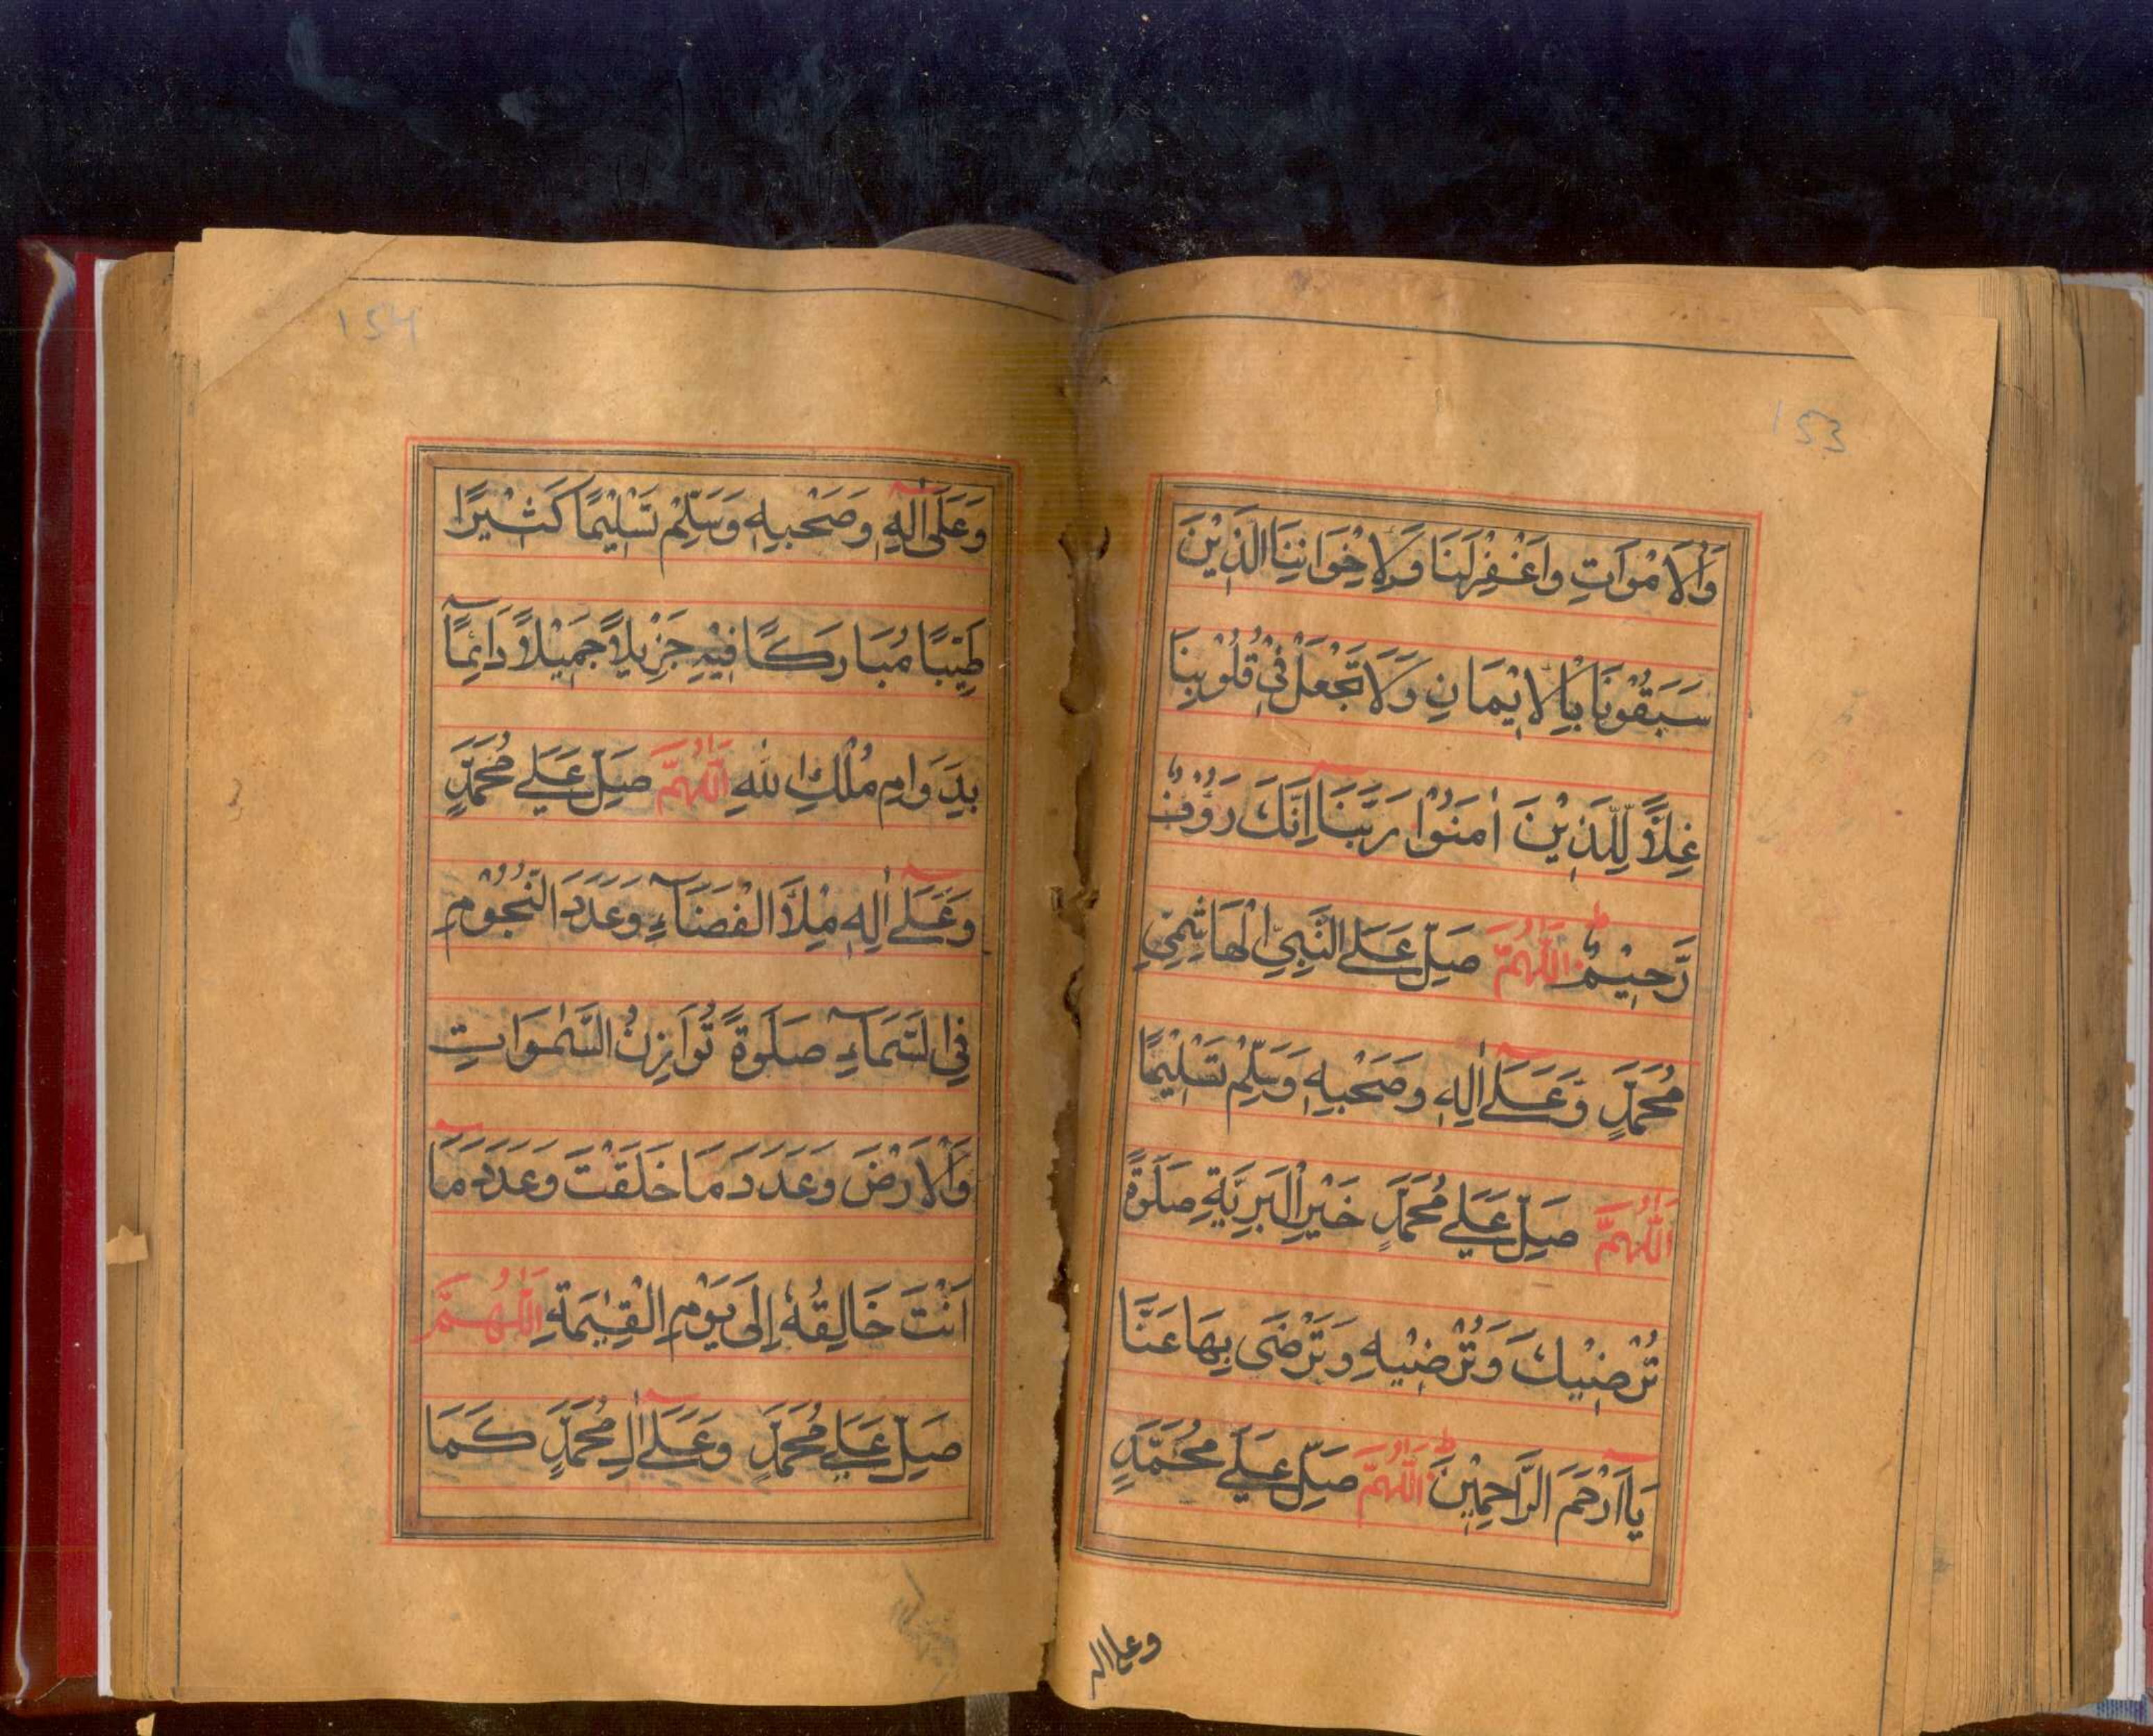 153
وَالْاَمْوَاتِ وَاغْفِرْلَنَا وَلِاِخْوَانِنَا الَّذِيْنَ
سَبَقُوْنَا بِالْاِيْمَانِ وَلَا تَجْعَلْ فِيْ قُلُوْبِنَا
غِلًّا لِّلَّذِيْنَ اٰمَنُوْا رَبَّنَآ اِنَّكَ رَؤُفٌ
رَّحِيْمٌ ط اَللّٰهُمَّ صَلِّ عَلَى النَّبِيِّ الْهَاشِمِيِّ
مُحَمَّدٍ وَّعَلٰٓى اٰلِهٖ وَصَحْبِهٖ وَسَلِّمْ تَسْلِيْمًا
اَللّٰهُمَّ صَلِّ عَلٰى مُحَمَّدٍ خَيْرِ الْبَرِيَّةِ صَلٰوةً
تُرْضِيْكَ وَتُرْضِيْهِ وَتَرْضٰى بِهَا عَنَّا
يَآ اَرْحَمَ الرَّاحِمِيْنَ ط اَللّٰهُمَّ صَلِّ عَلٰى مُحَمَّدٍ
وعلى اله
154
وَعَلٰٓى اٰلِهٖ وَصَحْبِهٖ وَسَلِّمْ تَسْلِيْمًا كَثِيْرًا
طَيِّبًا مُبَارَكًا فِيْهِ جَزِيْلًا جَمِيْلًا دَآئِمًا
بِدَوَامِ مُلْكِ اللّٰهِ اَللّٰهُمَّ صَلِّ عَلٰى مُحَمَّدٍ
وَّعَلٰٓى اٰلِهٖ مِلْأَ الْفَضَآءِ وَعَدَدَ النُّجُوْمِ
فِي السَّمَآءِ صَلٰوةً تُوَازِنُ السَّمٰوَاتِ
وَالْاَرْضَ وَعَدَدَ مَا خَلَقْتَ وَعَدَدَ مَآ
اَنْتَ خَالِقُهٗ اِلٰى يَوْمِ الْقِيٰمَةِ اَللّٰهُمَّ
صَلِّ عَلٰى مُحَمَّدٍ وَعَلٰٓى اٰلِ مُحَمَّدٍ كَمَا